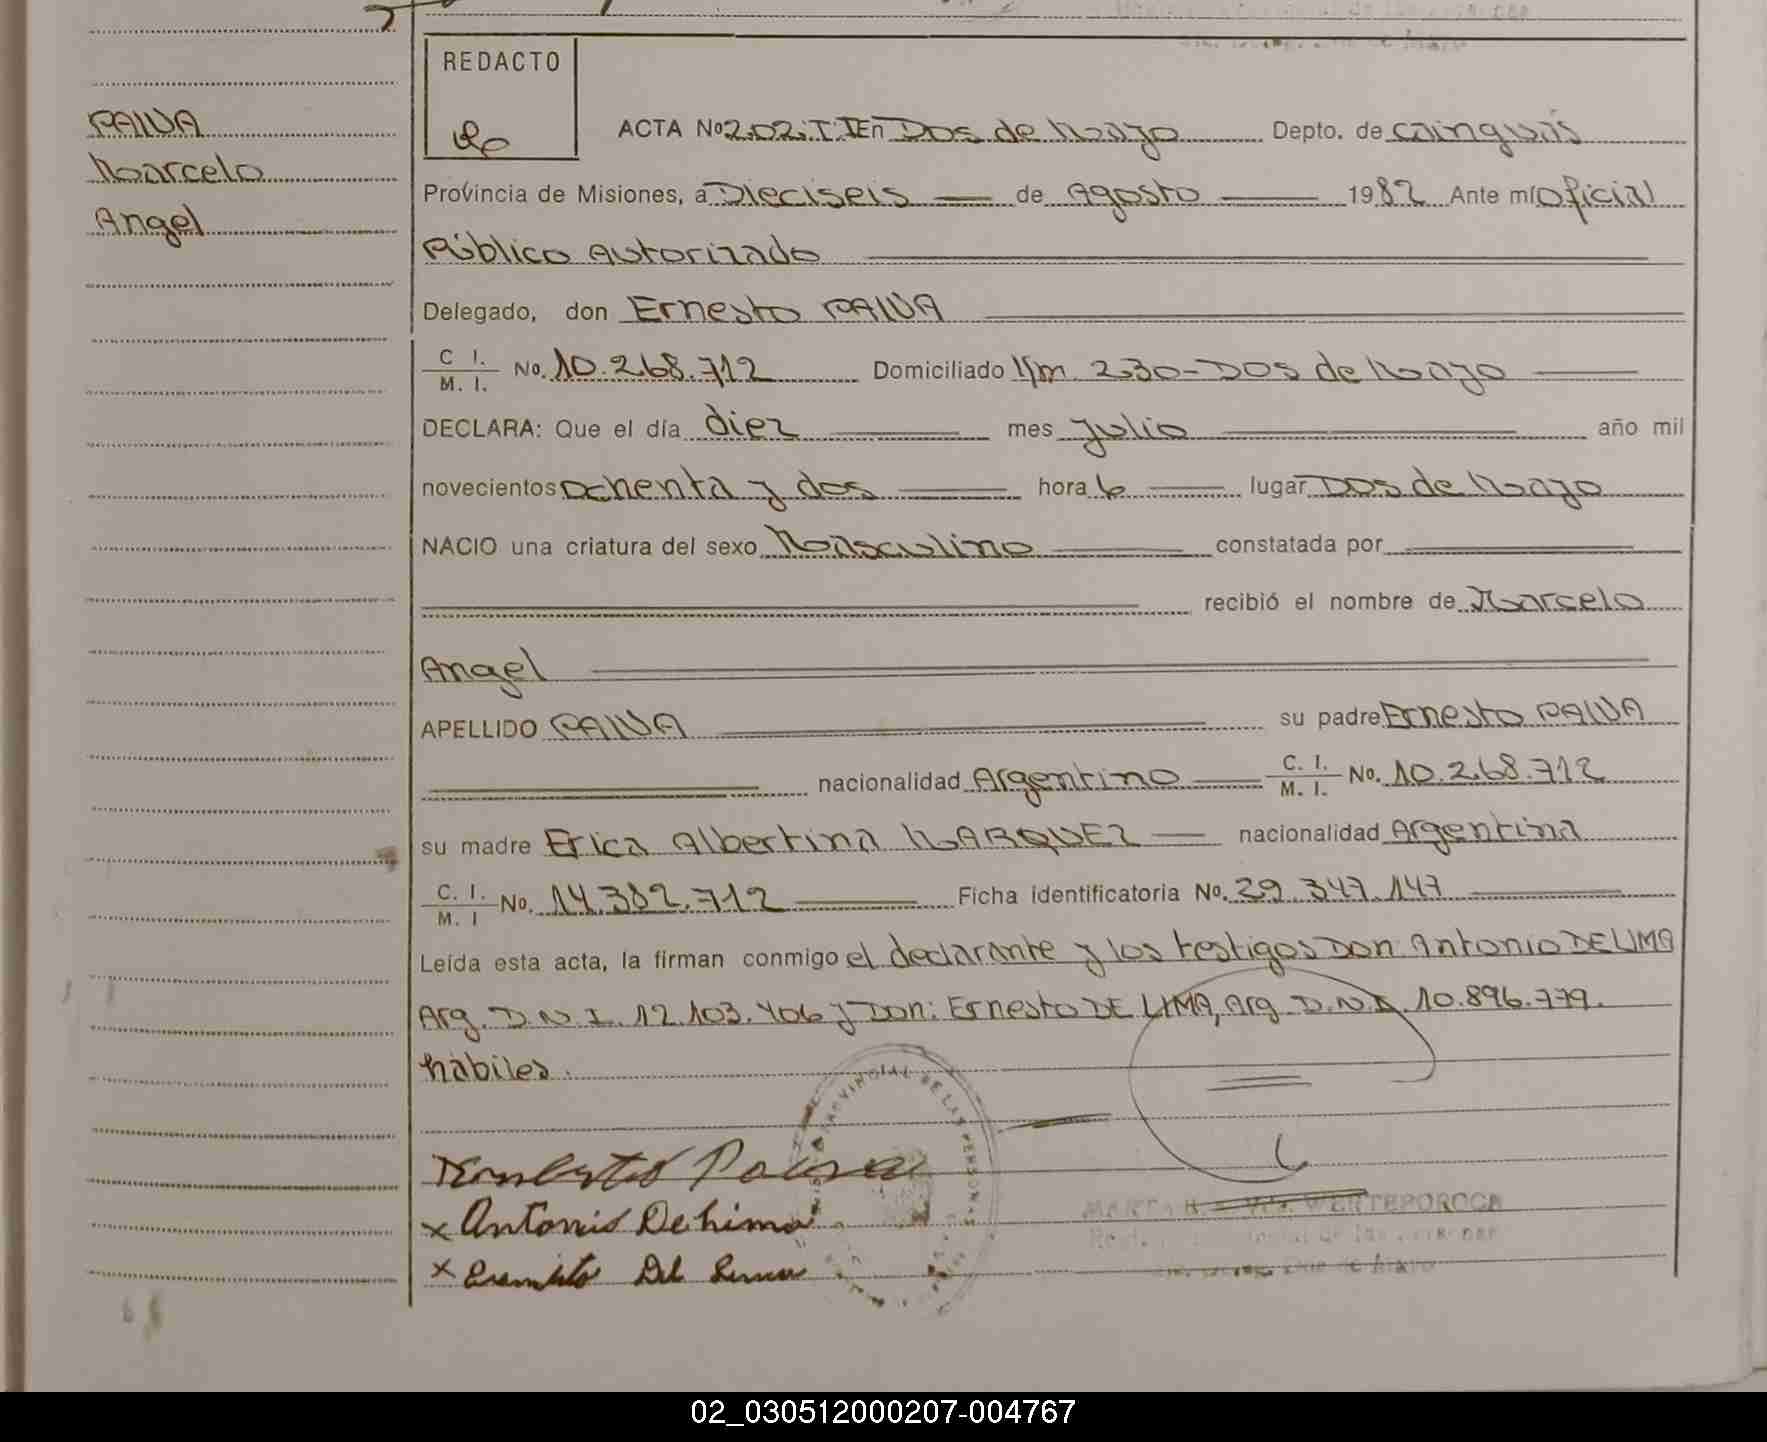 REDACTO
PAIVA
Marcelo
Angel
ACTA No 202.T.II En Dos de Mayo Depto. de cainguás
Provincia de Misiones, a Dieciseis de Agosto 1982 Ante mí oficial
Público Autorizado
Delegado, don Ernesto PAIVA
C I. M. I. No. 10.268.712 Domiciliado l/m. 230-Dos de Mayo
DECLARA: Que el día diez mes Julio año mil
novecientos ochenta y dos hora 6 lugar Dos de Mayo
NACIO una criatura del sexo Masculino constatada por
recibió el nombre de Marcelo
Angel
APELLIDO PAIVA su padre Ernesto PAIVA
nacionalidad Argentino C. I. M. I. No. 10.268.712
su madre Erica Albertina MARQUEZ nacionalidad Argentina
C. I. M. I No. 14.382.712 Ficha identificatoria No. 29.347.147
Leída esta acta, la firman conmigo el declarante y los testigos Don: Antonio DE LIMA
Arg. D.N.I. 12.103.406 y Don: Ernesto DE LIMA, Arg. D.N.I. 10.896.779.
hábiles.
PROVINCIAL DE LAS PERSONAS
x Antonio De Lima
MARTA H. Vda. WERTEPOROCA
Dos de Mayo
02_030512000207-004767